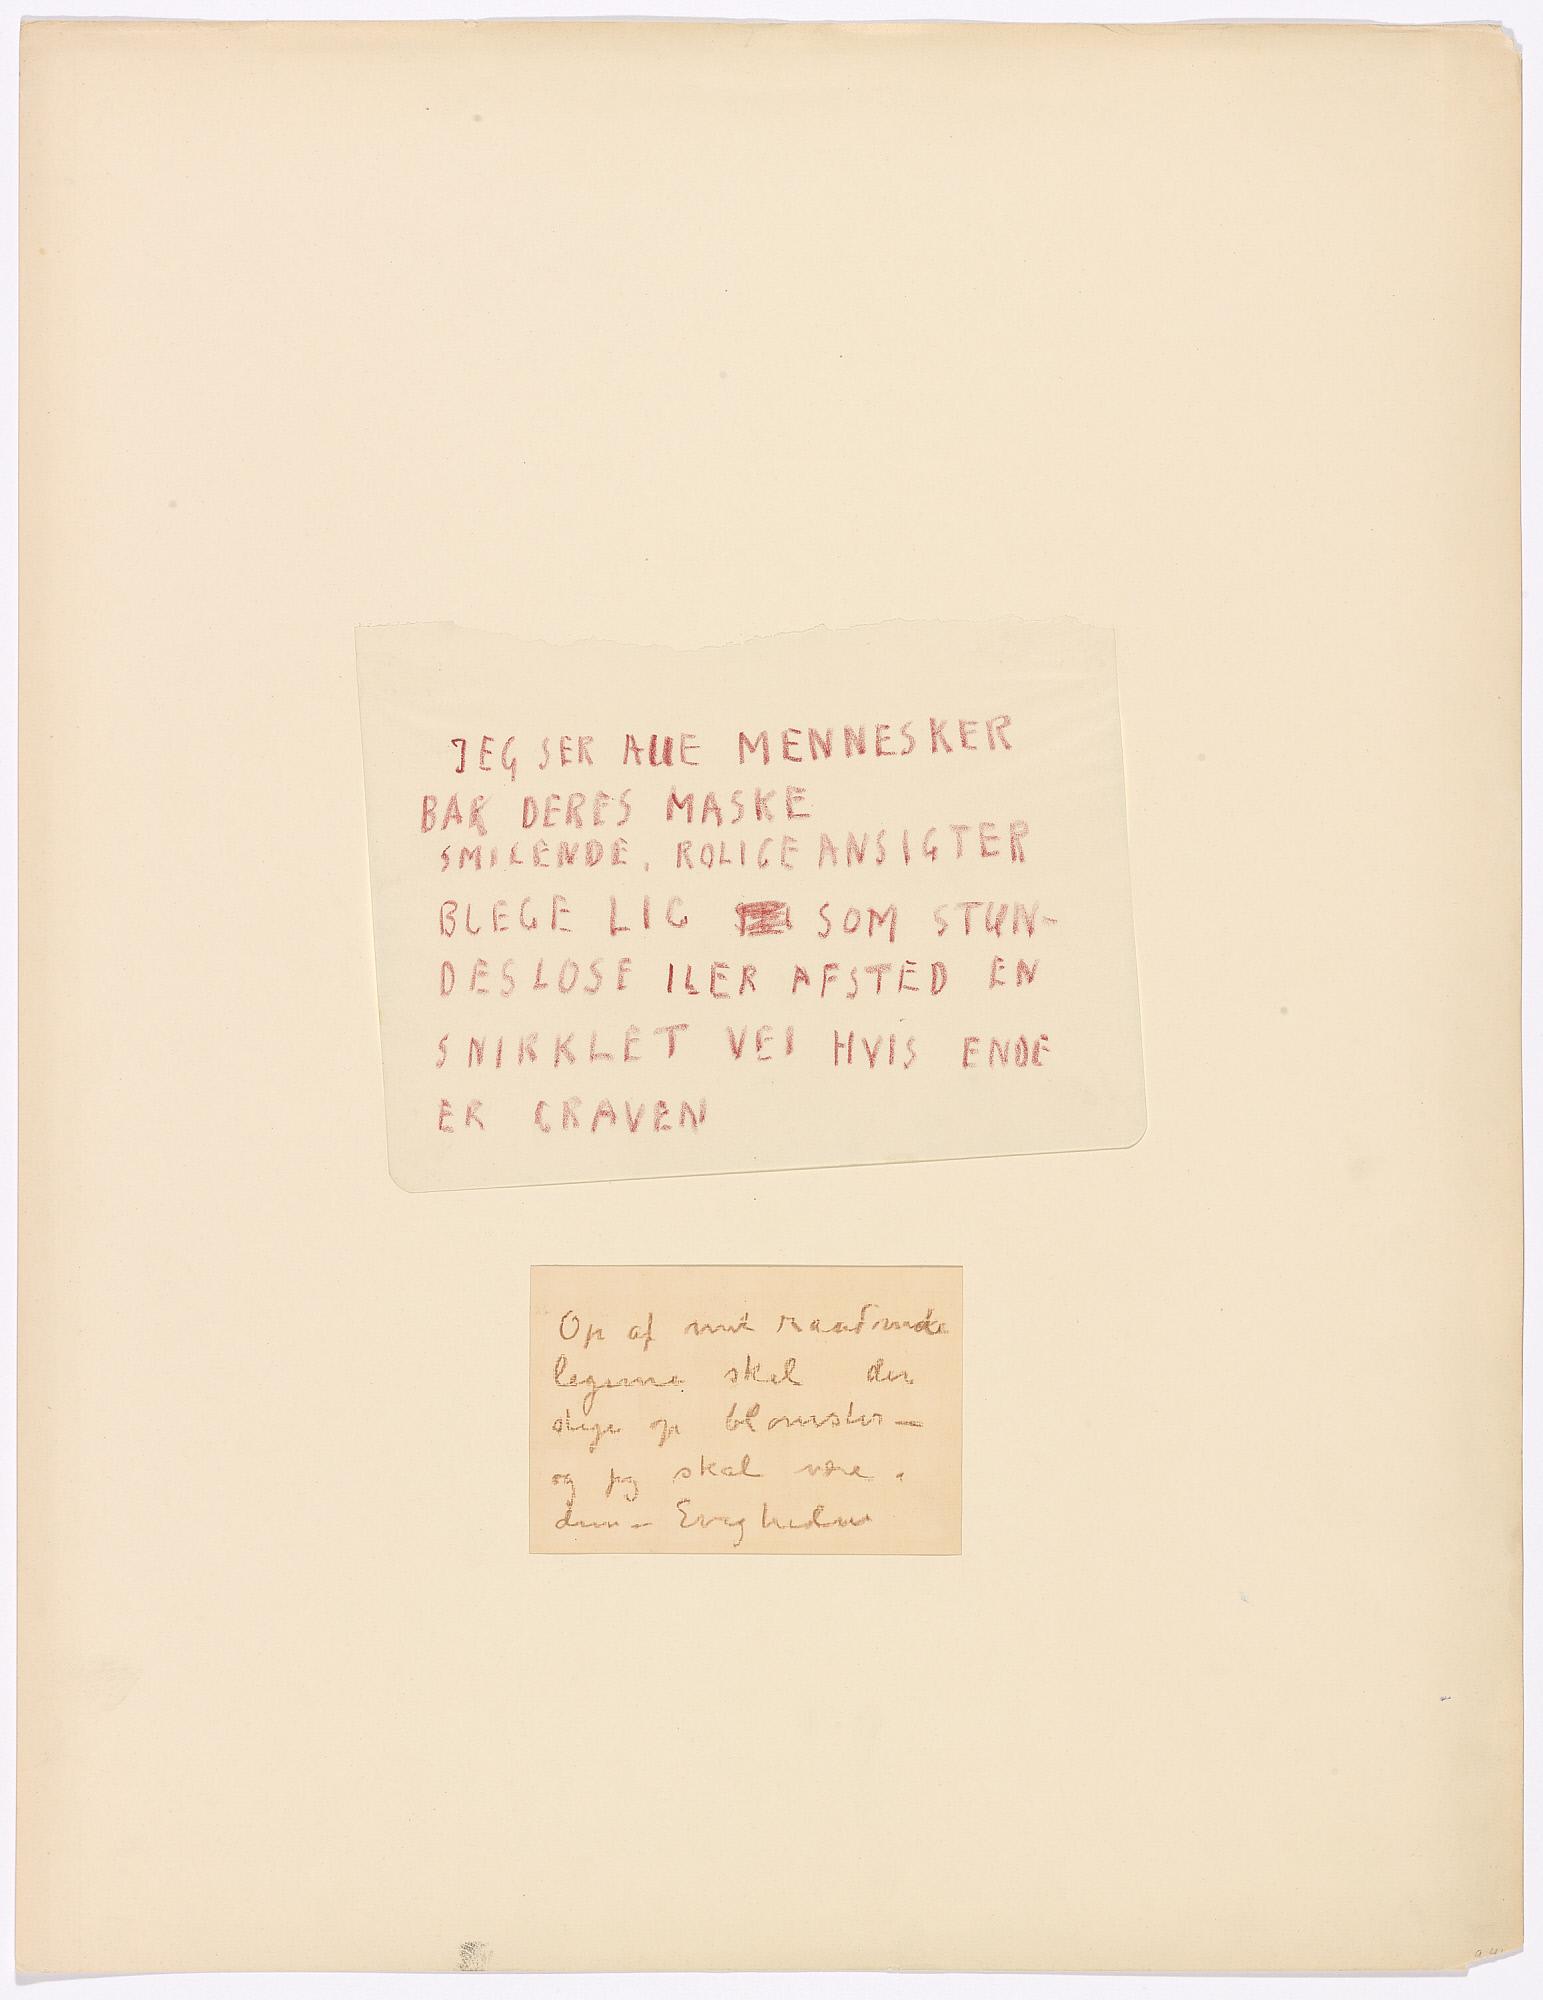 JEG SER ALLE MENNESKER
BAK DERES MASKE
SMILENDE, ROLIGE ANSIGTER
BLEGE LIG SOM STUN-
DESLØSE ILER AFSTED EN
SNIRKLET VEI HVIS ENDE
ER GRAVEN
Op af mit raadnende
legeme skal der
stige op blomster —
og jeg skal være i
dem — Evigheden